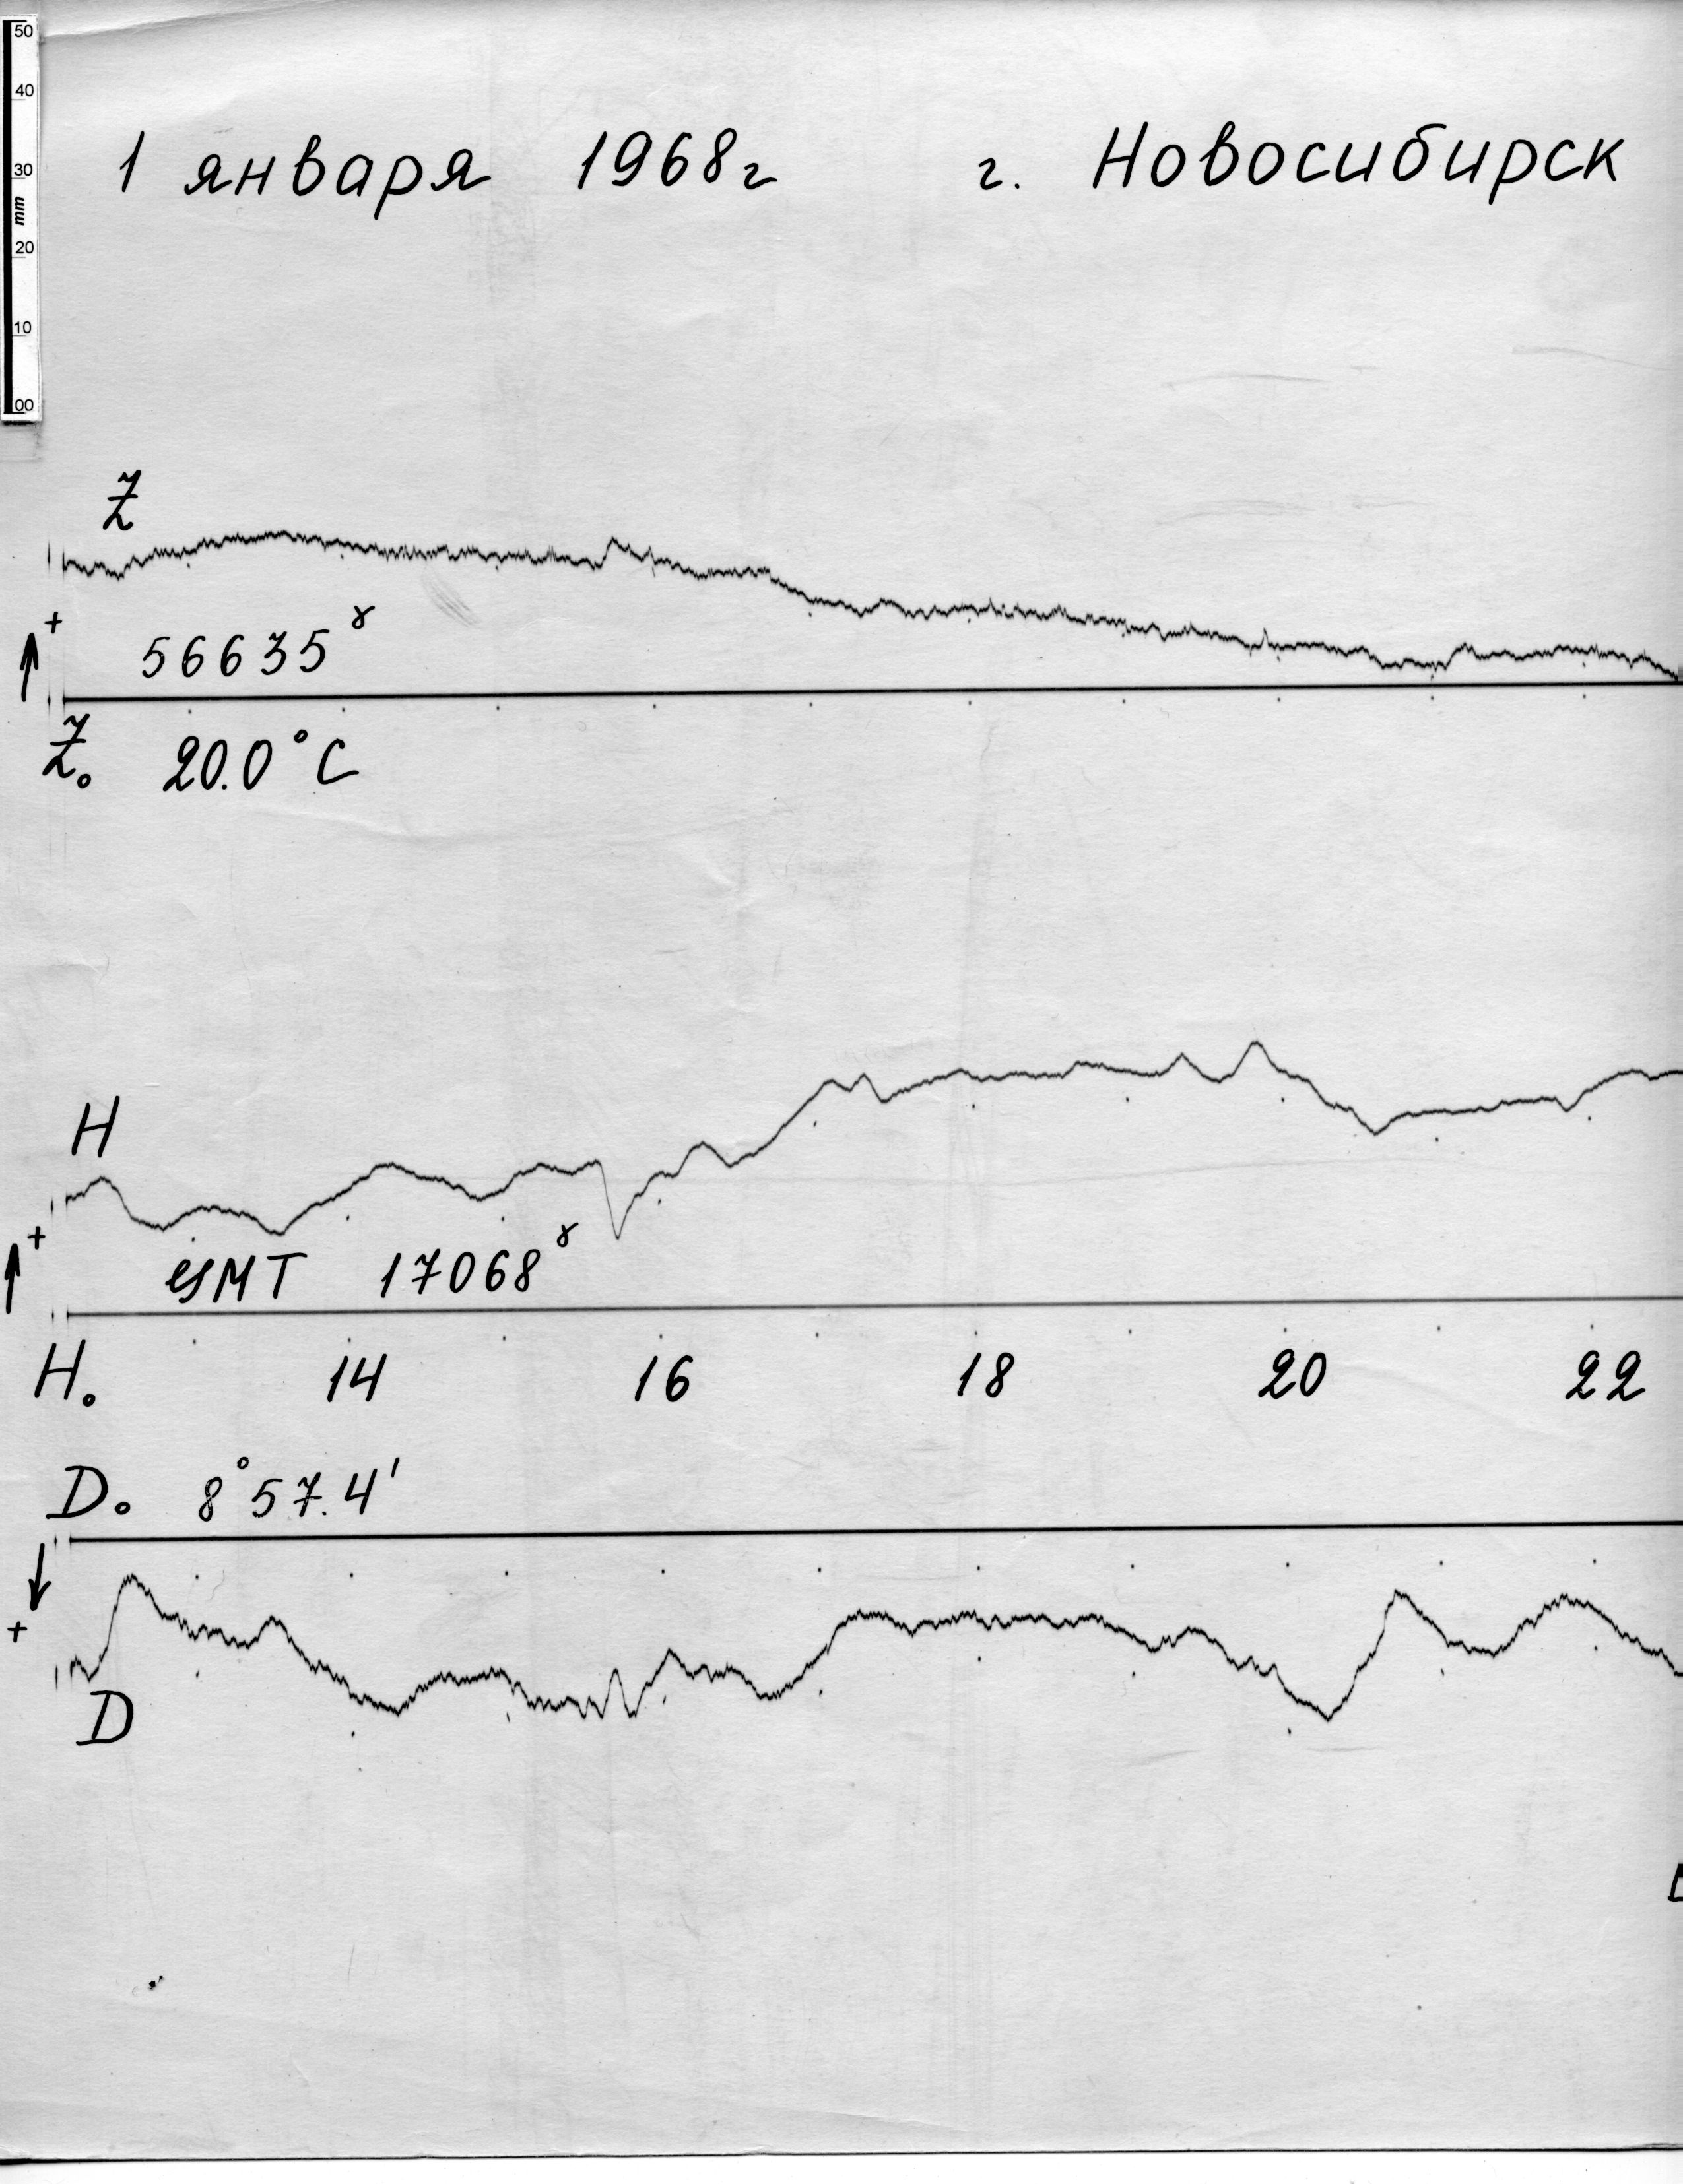 50
40
30
mm
20
10
00
1 января 1968г г. Новосибирск
Z
+
56635γ
Z₀ 20.0°C
H
+
17068γ
H₀ 14 16 18 20 22
D₀ 8°57.4'
+
D